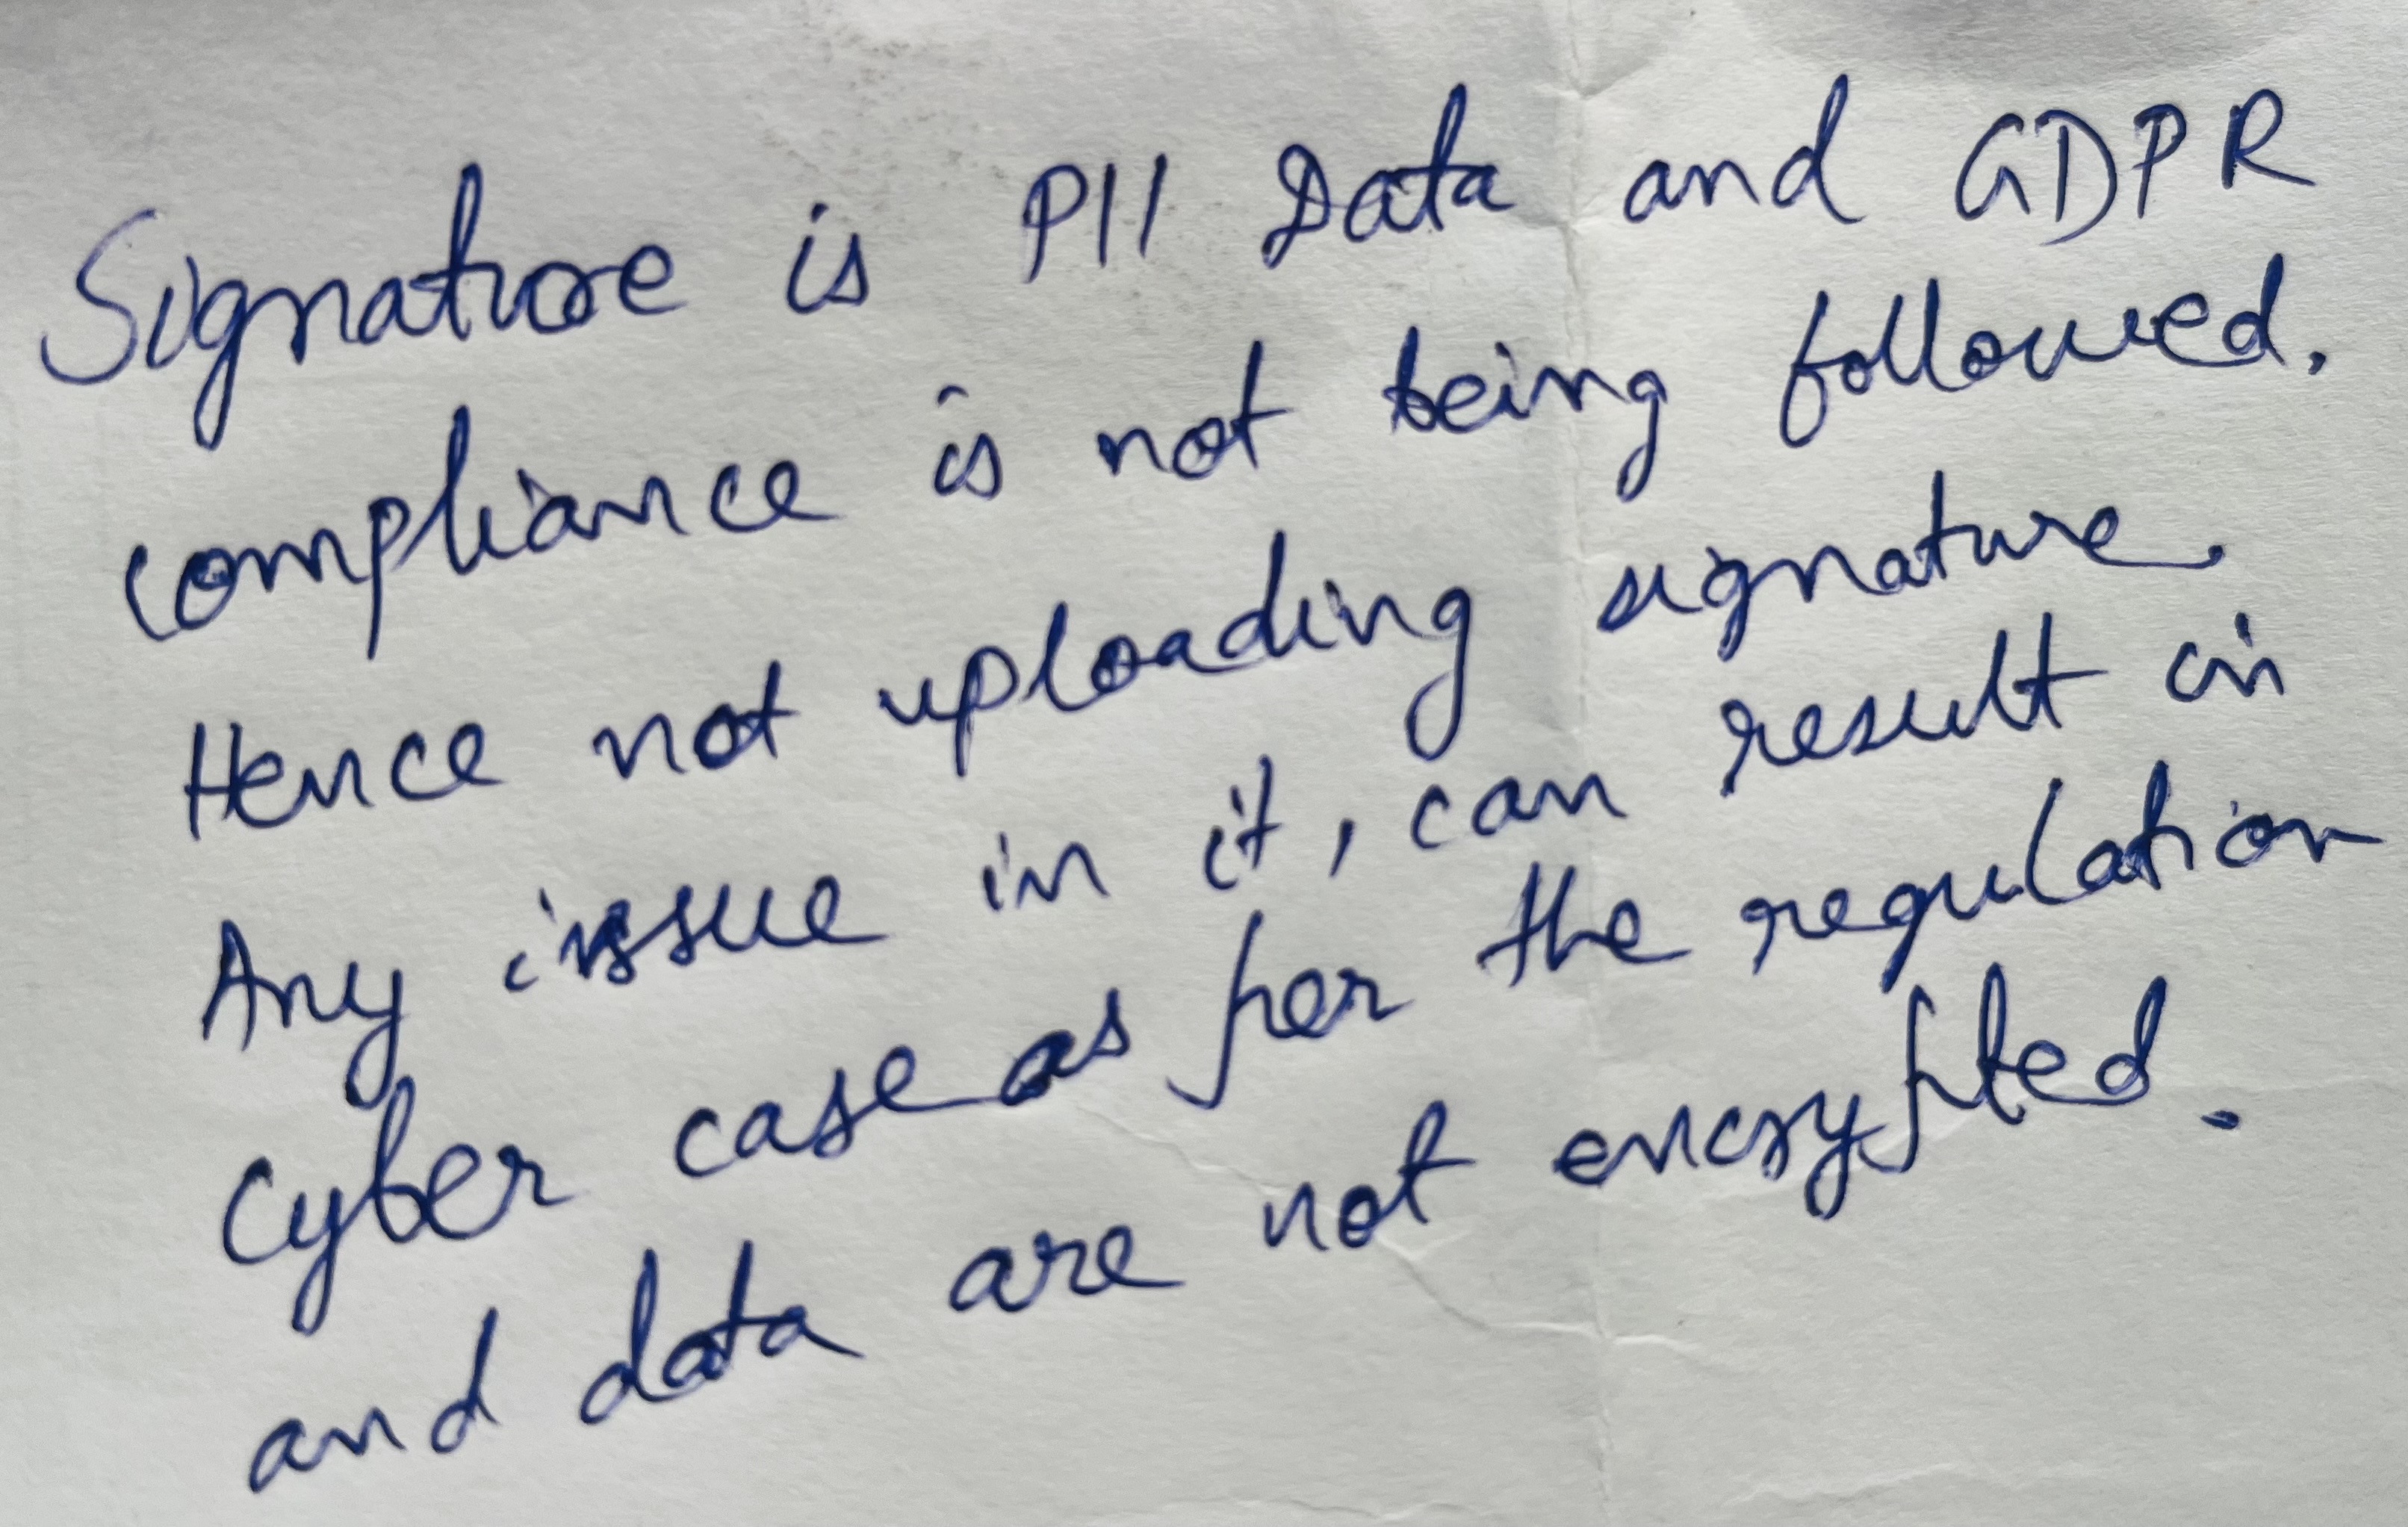 Signature is PII Data and GDPR
compliance is not being followed.
Hence not uploading signature.
Any issue in it, can result in
cyber case as per the regulation
and data are not encrypted.